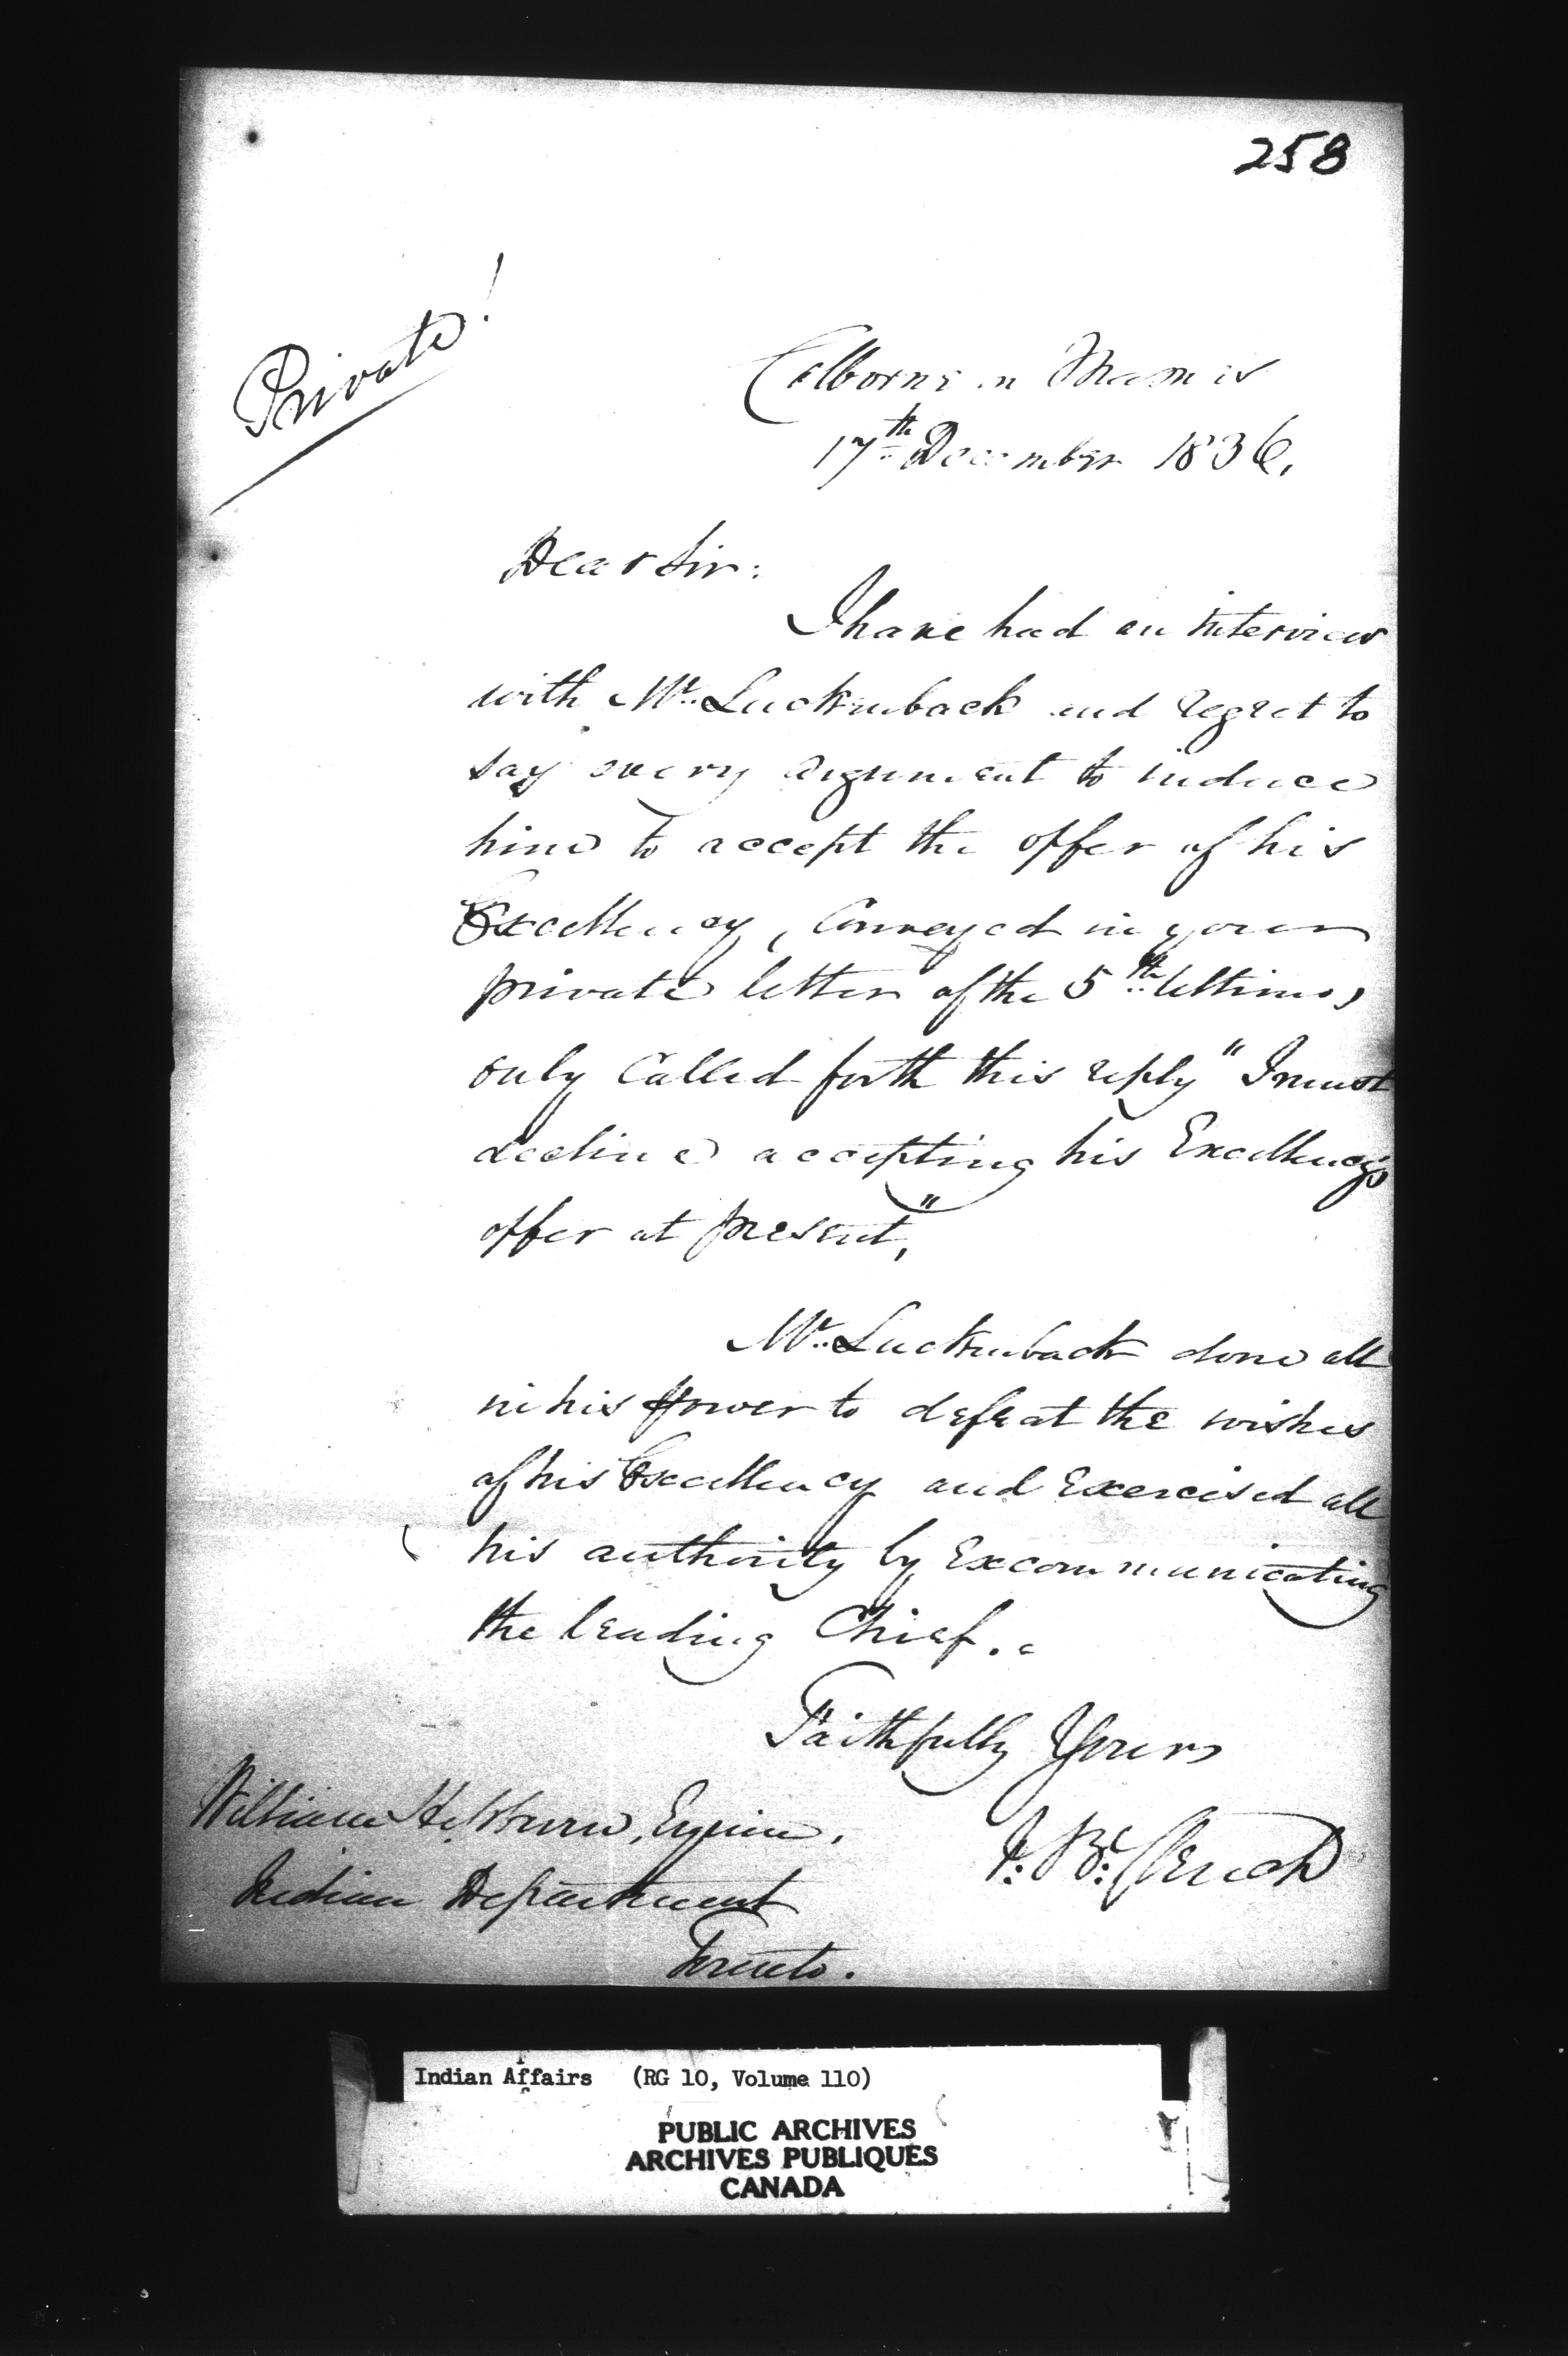 258
Private!
Colborne on Thames
17th December 1836.
Dear Sir:
I have had an interview
with Mr. Luckenback and regret to
say every argument to induce
him to accept the offer of his
Excellency, Conveyed in your
private letter of the 5th Ultimo,
only Called forth this reply "I must
decline accepting his Excellency's
offer at present,"
Mr. Luckenback done all
in his power to defeat the wishes
of his Excellency and Exercised all
his authority by Excommunicating
the leading Chief.
Faithfully Yours
J. B. Clench
William Hepburn, Esquire.
Indian Department
Toronto.
Indian Affairs (RG 10, Volume 110)
PUBLIC ARCHIVES
ARCHIVES PUBLIQUES
CANADA